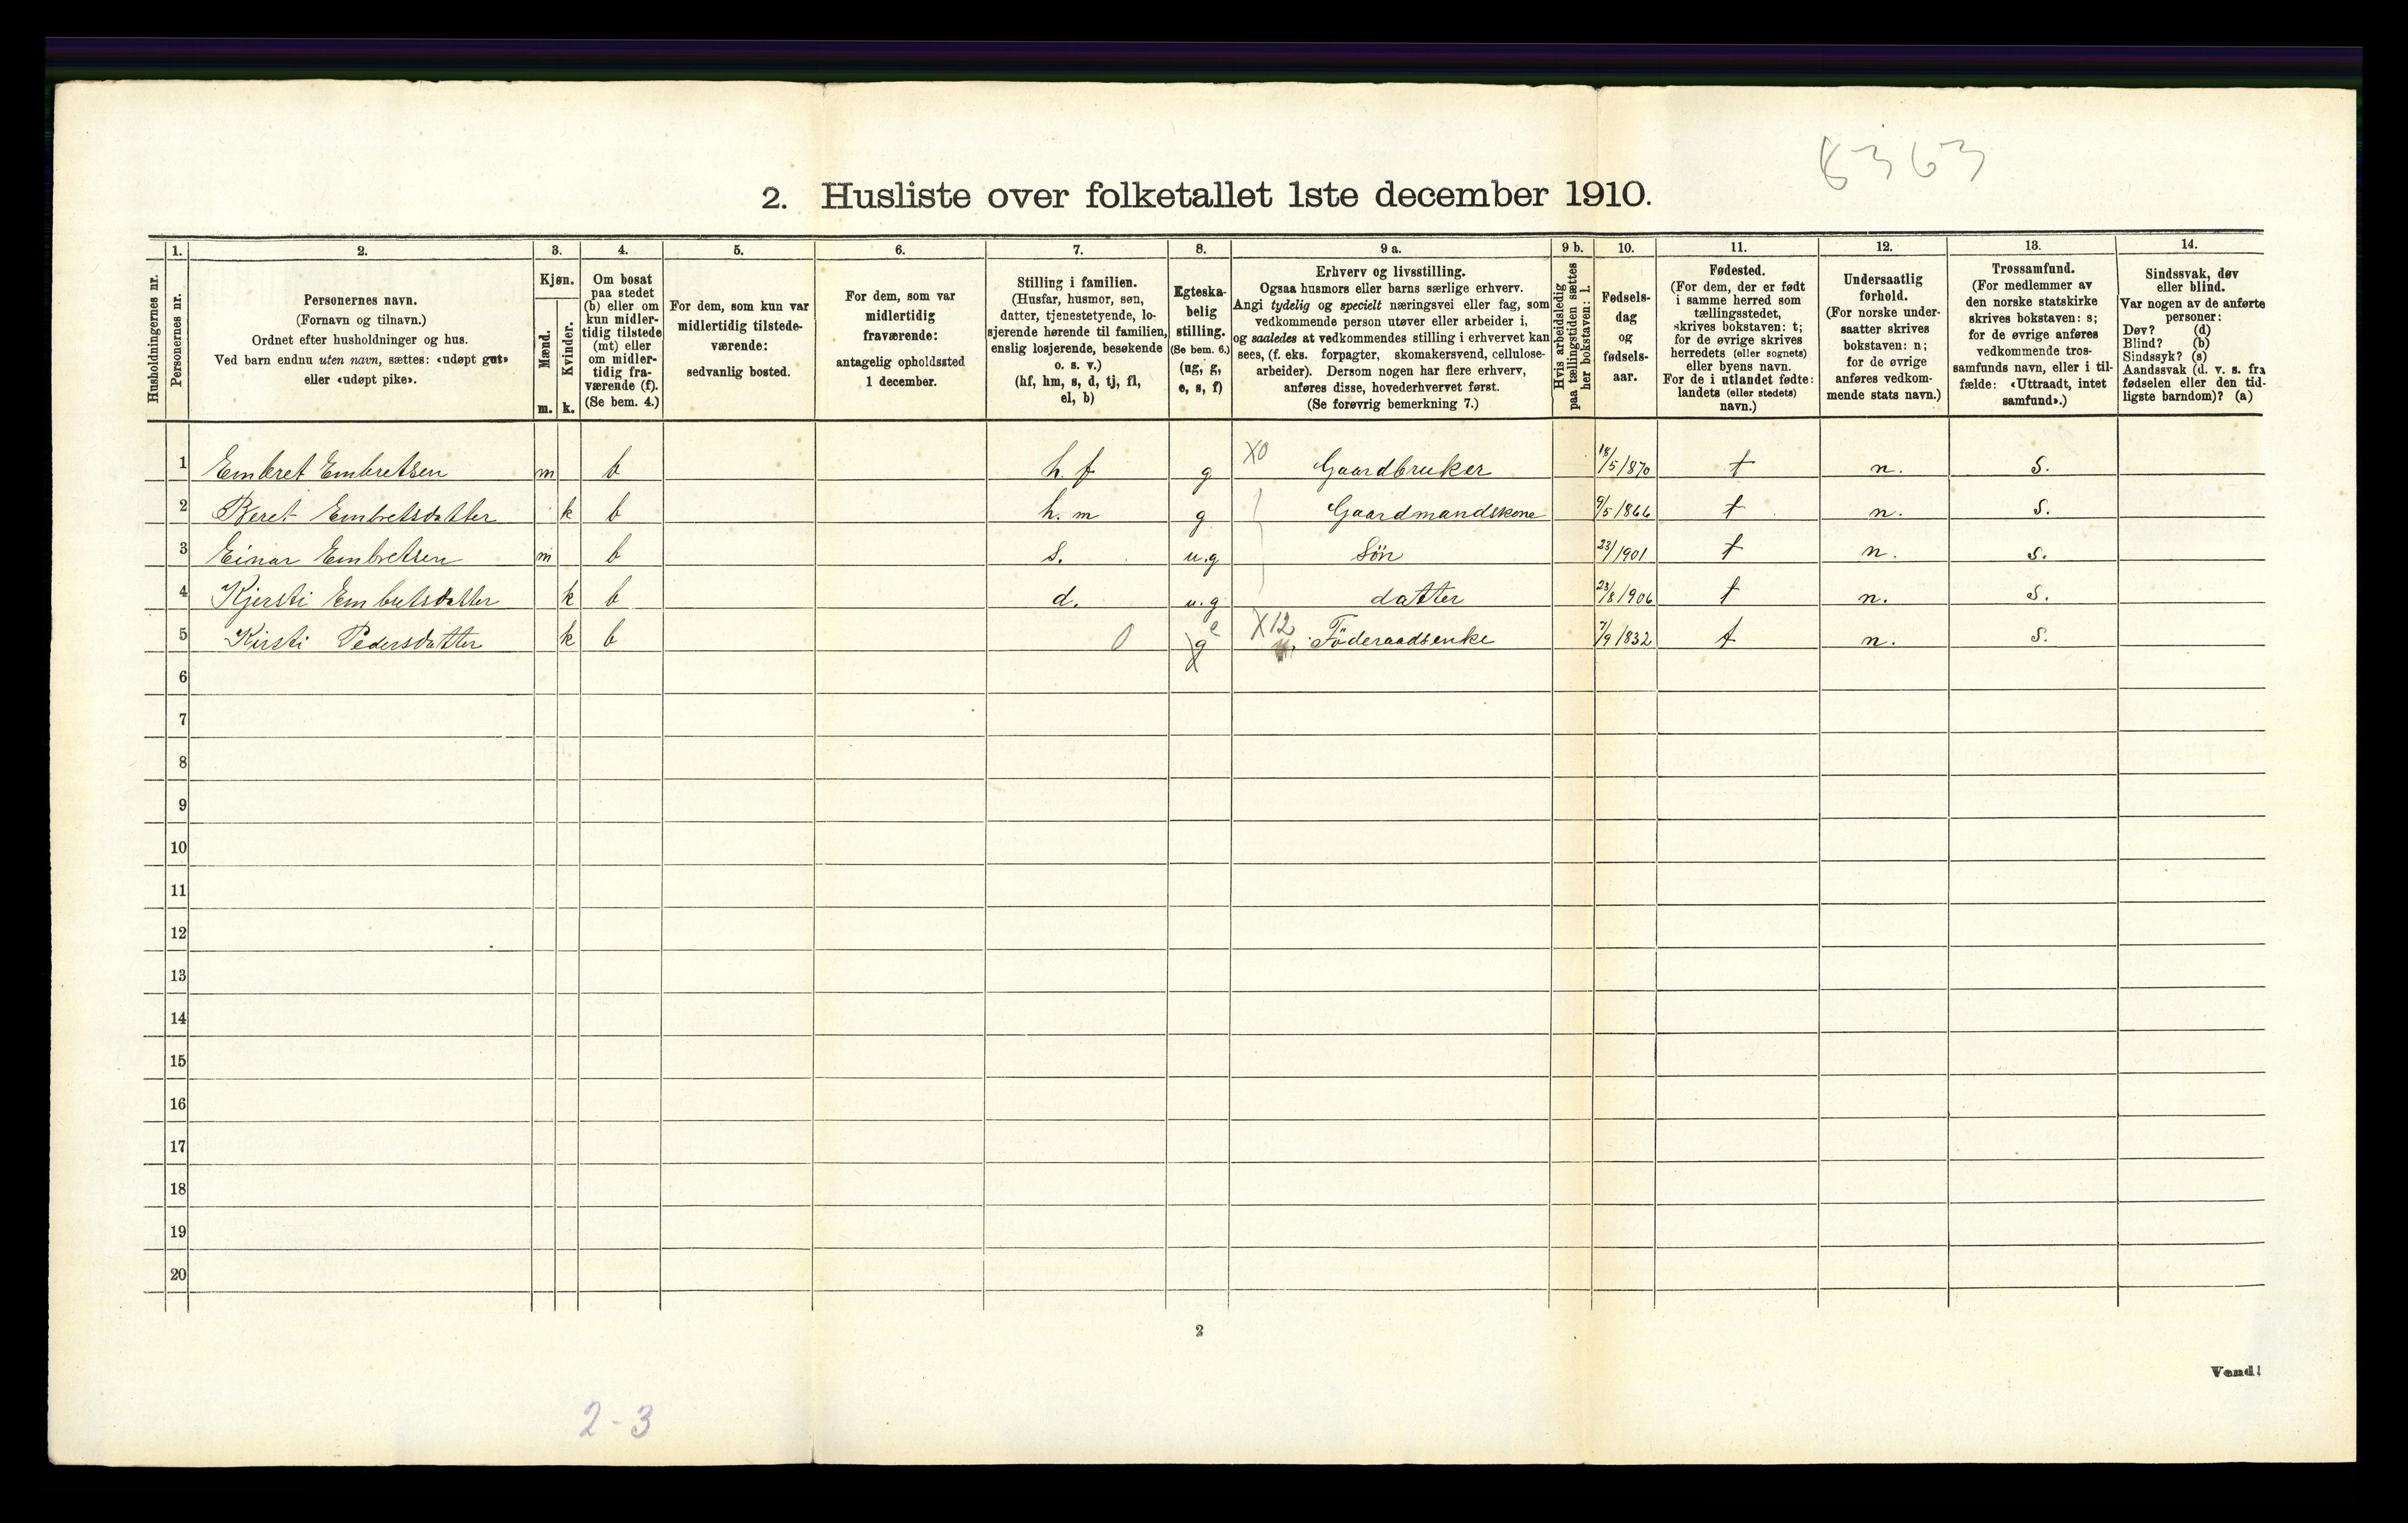 6363
2. Husliste over folketallet 1ste december 1910.
1. 2. 3. 4. 5. 6. 7. 8. 9 a. 9 b. 10. 11. 12. 13. 14.
Husholdningernes nr.
Personernes nr.
Personernes navn.
(Fornavn og tilnavn.)
Ordnet efter husholdninger og hus.
Ved barn endnu uten navn, sættes: «udøpt gut»
eller «udøpt pike».
Kjøn.
Mænd.
Kvinder.
m. k.
Om bosat
paa stedet
(b) eller om
kun midler-
tidig tilstede
(mt) eller
om midler-
tidig fra-
værende (f).
(Se bem. 4.)
For dem, som kun var
midlertidig tilstede-
værende:
sedvanlig bosted.
For dem, som var
midlertidig
fraværende:
antagelig opholdssted
1 december.
Stilling i familien.
(Husfar, husmor, søn,
datter, tjenestetyende, lo-
sjerende hørende til familien,
enslig losjerende, besøkende
o. s. v.)
(hf, hm, s, d, tj, fl,
el, b)
Egteska-
belig
stilling.
(Se bem. 6.)
(ug, g,
e, s, f)
Erhverv og livsstilling.
Ogsaa husmors eller barns særlige erhverv.
Angi tydelig og specielt næringsvei eller fag, som
vedkommende person utøver eller arbeider i,
og saaledes at vedkommendes stilling i erhvervet kan
sees, (f. eks. forpagter, skomakersvend, cellulose-
arbeider). Dersom nogen har flere erhverv,
anføres disse, hovederhvervet først.
(Se forøvrig bemerkning 7.)
Hvis arbeidsledig
paa tællingstiden sættes
her bokstaven: l.
Fødsels-
dag
og
fødsels-
aar.
Fødested.
(For dem, der er født
i samme herred som
tællingsstedet,
skrives bokstaven: t;
for de øvrige skrives
herredets (eller sognets)
eller byens navn.
For de i utlandet fødte:
landets (eller stedets)
navn.)
Undersaatlig
forhold.
(For norske under-
saatter skrives
bokstaven: n;
for de øvrige
anføres vedkom-
mende stats navn.)
Trossamfund.
(For medlemmer av
den norske statskirke
skrives bokstaven: s;
for de øvrige anføres
vedkommende tros-
samfunds navn, eller i til-
fælde: «Uttraadt, intet
samfund».)
Sindssvak, døv
eller blind.
Var nogen av de anførte
personer:
Døv? (d)
Blind? (b)
Sindssyk? (s)
Aandssvak (d. v. s. fra
fødselen eller den tid-
ligste barndom)? (a)
1 Embret Embretsen m b h. f g X0 Gaardbruker 18/5 1870 t n. s.
2 Beret Embretsdatter k b h. m g Gaardmandskone 9/5 1866 t n. s.
3 Einar Embretsen m b s. u.g Søn 23/1901 t n. s.
4 Kjersti Embretsdatter k b d. u.g datter 23/8 1906 t n. s.
5 Kirsti Pedersdatter k b 0 g e X12 Föderaadsenke 7/9 1832 t n. s.
6
7
8
9
10
11
12
13
14
15
16
17
18
19
20
2
Vend!
2-3